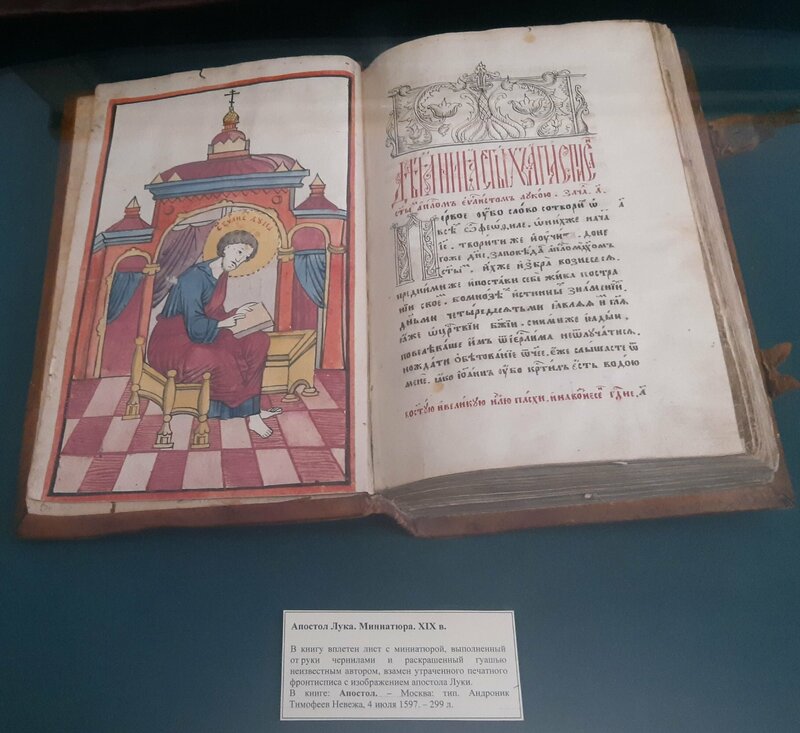 ЕУЛИС ЛУКА
ДѢѦНИѦ СТЫХЪ АПЛЪ СПИСА
стымъ апломъ еѵлистомъ лукою. зача. а
Первое оубо слово сотворихъ ѡ
всѣ ѽ ѳеѡфиле, ѡ нихже нача
іс. творитиже и оучити. доне
гоже дне, заповѣда апломъ дхомъ
стымъ. ихже избра вознесесѧ
преднимиже ипостави себе жива постра
нїи своемъ. вомнозѣ истинны знаменїи
деньми четыредесѧтьми ꙗвлѧѧ и глѧ
ꙗже ѡ цртвїи бжїи. снимиже иꙗдыи,
повелѣваше имъ ѿ іерлима неѿлучатисѧ,
нождати обѣтованїе ѡче, еже слышасте ѿ
мене. ꙗко іѡаннъ оубо кртилъ есть водою
востую ивеликую нлю пасхи.
Апостол Лука. Миниатюра. XIX в.
В книгу вплетен лист с миниатюрой, выполненный
от руки чернилами и раскрашенный гуашью
неизвестным автором, взамен утраченного печатного
фронтисписа с изображением апостола Луки.
В книге: Апостол. – Москва: тип. Андроник
Тимофеев Невежа, 4 июля 1597. – 299 л.